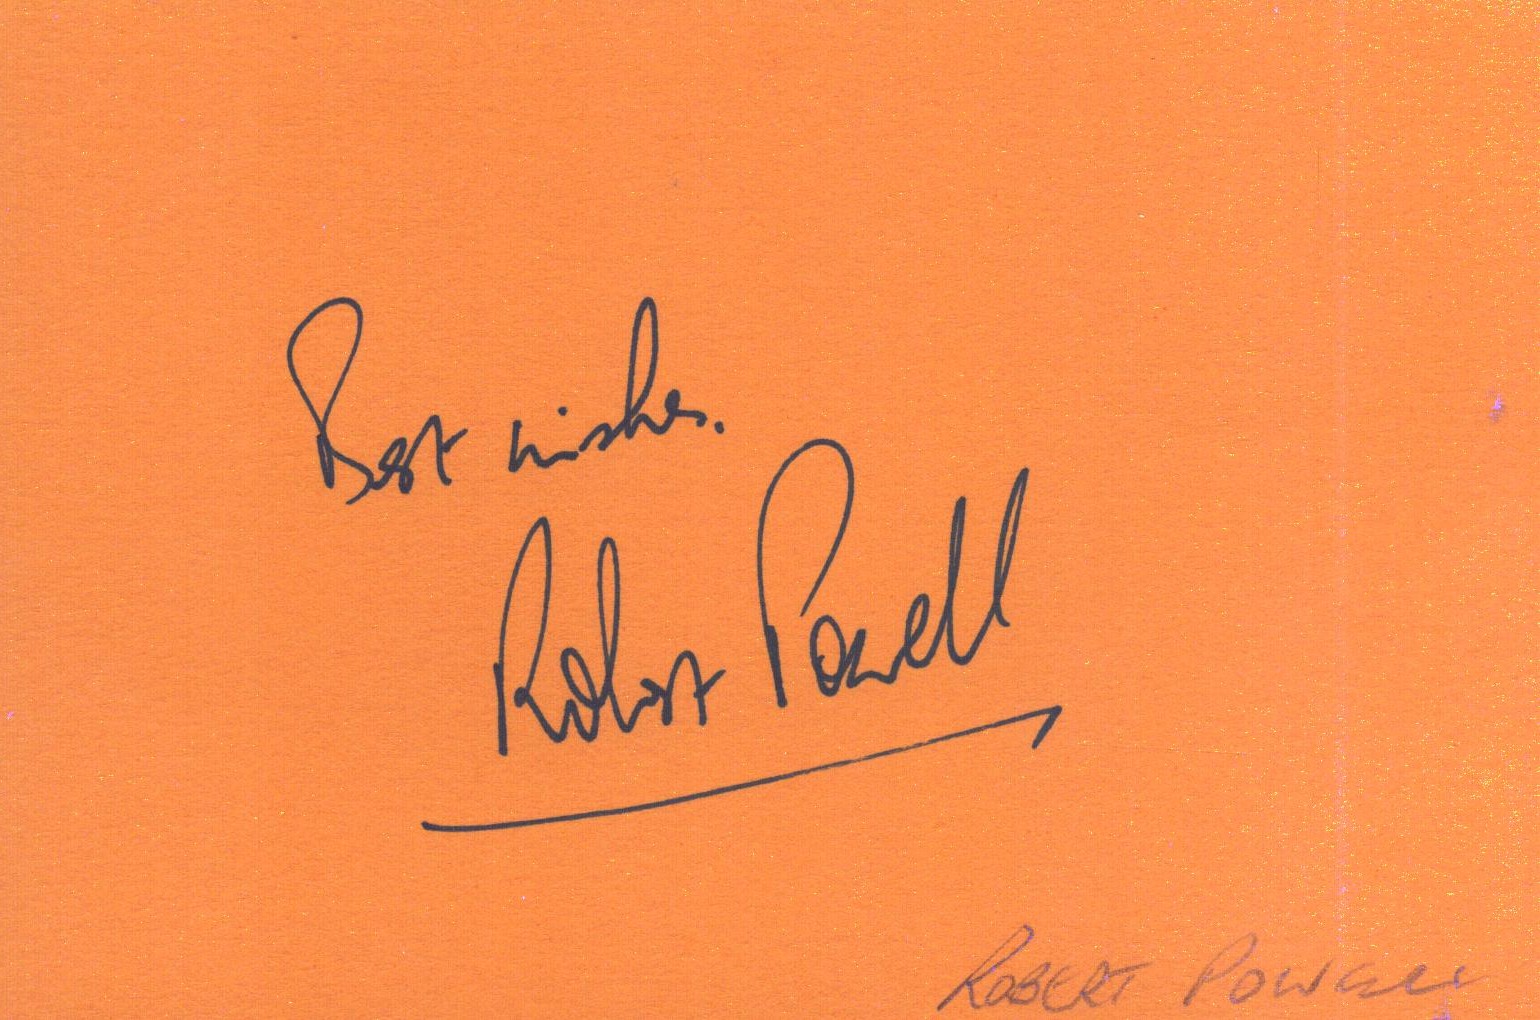 Best wishes.
Robert Powell
ROBERT POWELL